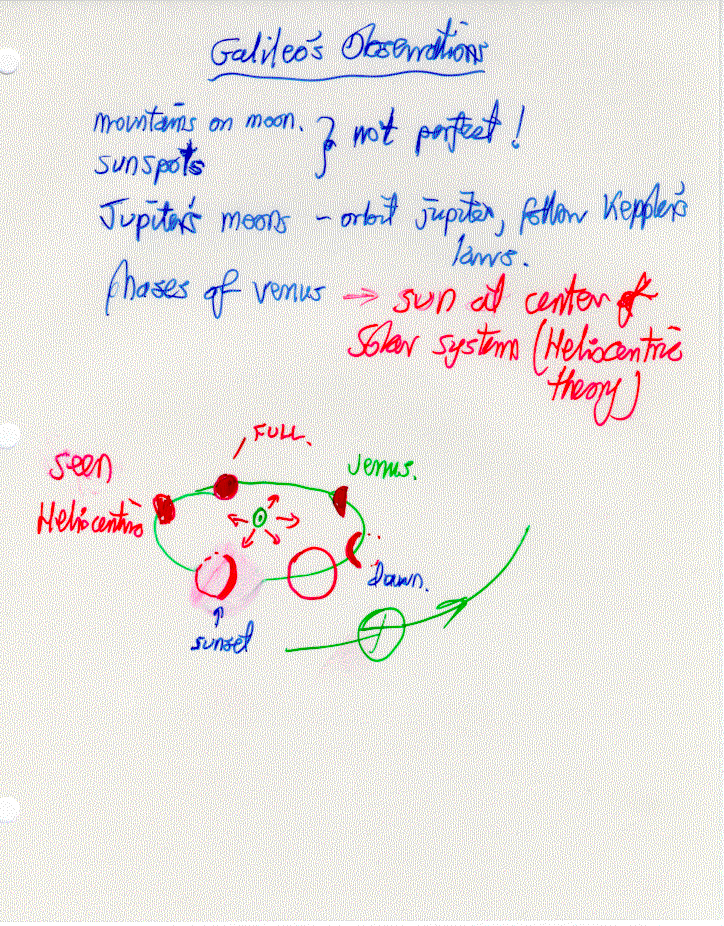 Galileo's Observations
mountains on moon. } not perfect!
sunspots
Jupiter's moons - orbit jupiter, follow Keppler's
laws.
phases of venus → sun at center of
Solar system (Heliocentric
theory)
FULL.
seen
Venus.
Heliocentric
Dawn.
sunset